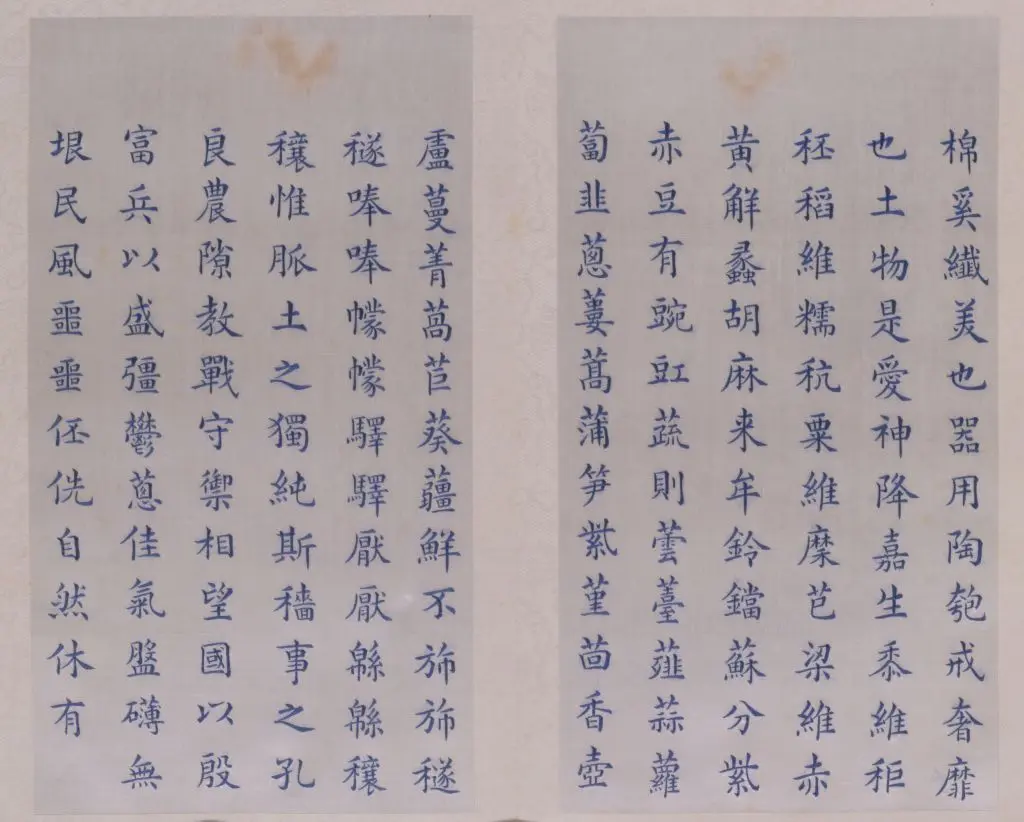 棉奚纖美也器用陶匏戒奢靡
也土物是愛神降嘉生黍維秬
秠稻維糯秔粟維穈芑梁維赤
黄觧蠡胡麻来牟鈴鐺蘇分紫
赤豆有豌豇蔬則蕓薹薤蒜蘿
蔔韭蔥蔞蒿蒲笋紫堇茴香壺
盧蔓菁萵苣葵薑鮮不斾斾穟
穟唪唪幪幪驛驛厭厭緜緜穰
穰惟脈土之獨純斯穡事之孔
良農隙教戰守禦相望國以殷
富兵以盛彊鬱蔥佳氣盤礴無
垠民風噩噩伾侁自然休有